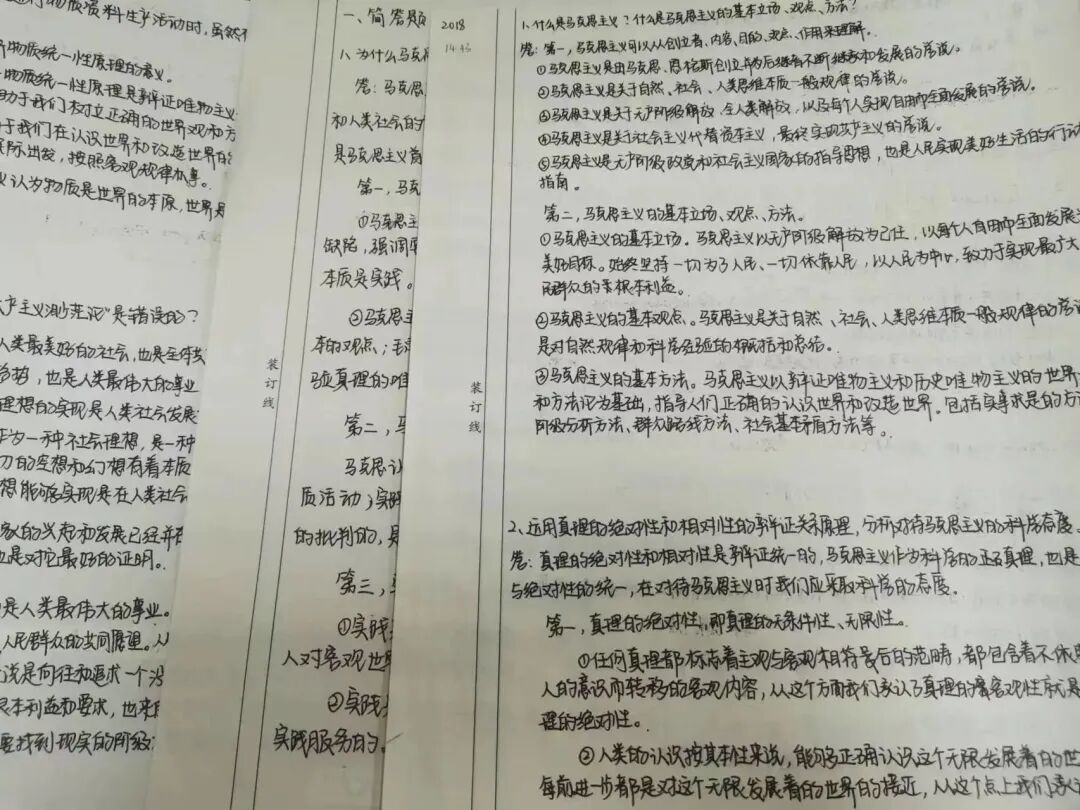 行物质资料生产活动时,虽然
物质统一性原理的意义。
物质统一性原理是辩证唯物主义
助于我们树立正确的世界观和方
于我们在认识世界和改造世界的
实际出发,按照客观规律办事。
认为物质是世界的本原,世界是
产主义渺茫论"是错误的?
人类最美好的社会,也是全体
趋势,也是人类最伟大的事业
理想的实现是人类社会发展
作为一种社会理想,是一种
切的空想和幻想有着本质
想能够实现是在人类社会
家的兴起和发展已经并
也是对它最好的证明。
是人类最伟大的事业。
人民群众的共同愿望。从
说是向往和追求一个没
根本利益和要求,也来
要找到现实的阶级
装订线
一、简答题
1、为什么马克
答:马克思
和人类社会的
是马克思主义首
第一,马克
①马克思主
缺陷,强调
本质是实践。
②马克思主
本的观点;毛
验真理的唯
第二,马
马克思认
质活动;实践
的批判的,是
第三,
①实践
人对客观世
②实践
实践服务的。
2018
14.43
装订线
1、什么是马克思主义?什么是马克思主义的基本立场、观点、方法?
答:第一,马克思主义可以从创立者、内容、目的、观点、作用来理解。
①马克思主义是由马克思、恩格斯创立并为后继者不断继承和发展的学说。
②马克思主义是关于自然、社会、人类思维本质一般规律的学说。
③马克思主义是关于无产阶级解放、全人类解放,以及每个人实现自由而全面发展的学说。
④马克思主义是关于社会主义代替资本主义,最终实现共产主义的学说。
⑤马克思主义是无产阶级政党和社会主义国家的指导思想,也是人民实现美好生活的行动
指南。
第二,马克思主义的基本立场、观点、方法。
①马克思主义的基本立场。马克思主义以无产阶级解放为己任,以每个人自由而全面发展
美好目标。始终坚持一切为了人民、一切依靠人民,以人民为中心,致力于实现最广大
民群众的根本利益。
②马克思主义的基本观点。马克思主义是关于自然、社会、人类思维本质一般规律的学说
是对自然规律和科学经验的概括和总结。
③马克思主义的基本方法。马克思主义以辩证唯物主义和历史唯物主义的世界
和方法论为基础,指导人们正确的认识世界和改造世界。包括实事求是的方法
阶级分析方法、群众路线方法、社会基本矛盾方法等。
2、运用真理的绝对性和相对性的辩证关系原理,分析对待马克思主义的科学态度。
答:真理的绝对性和相对性是辩证统一的,马克思主义作为科学的真理,也是
与绝对性的统一,在对待马克思主义时我们应采取科学的态度。
第一,真理的绝对性,即真理的无条件性、无限性。
①任何真理都标志着主观与客观相符最后的范畴,都包含着不依
人的意识而转移的客观内容,从这个方面我们承认了真理的客观性就是
理的绝对性。
②人类的认识按其本性来说,能够正确认识这个无限发展着的世
每前进一步都是对这个无限发展着的世界的接近,从这个点上我们承认